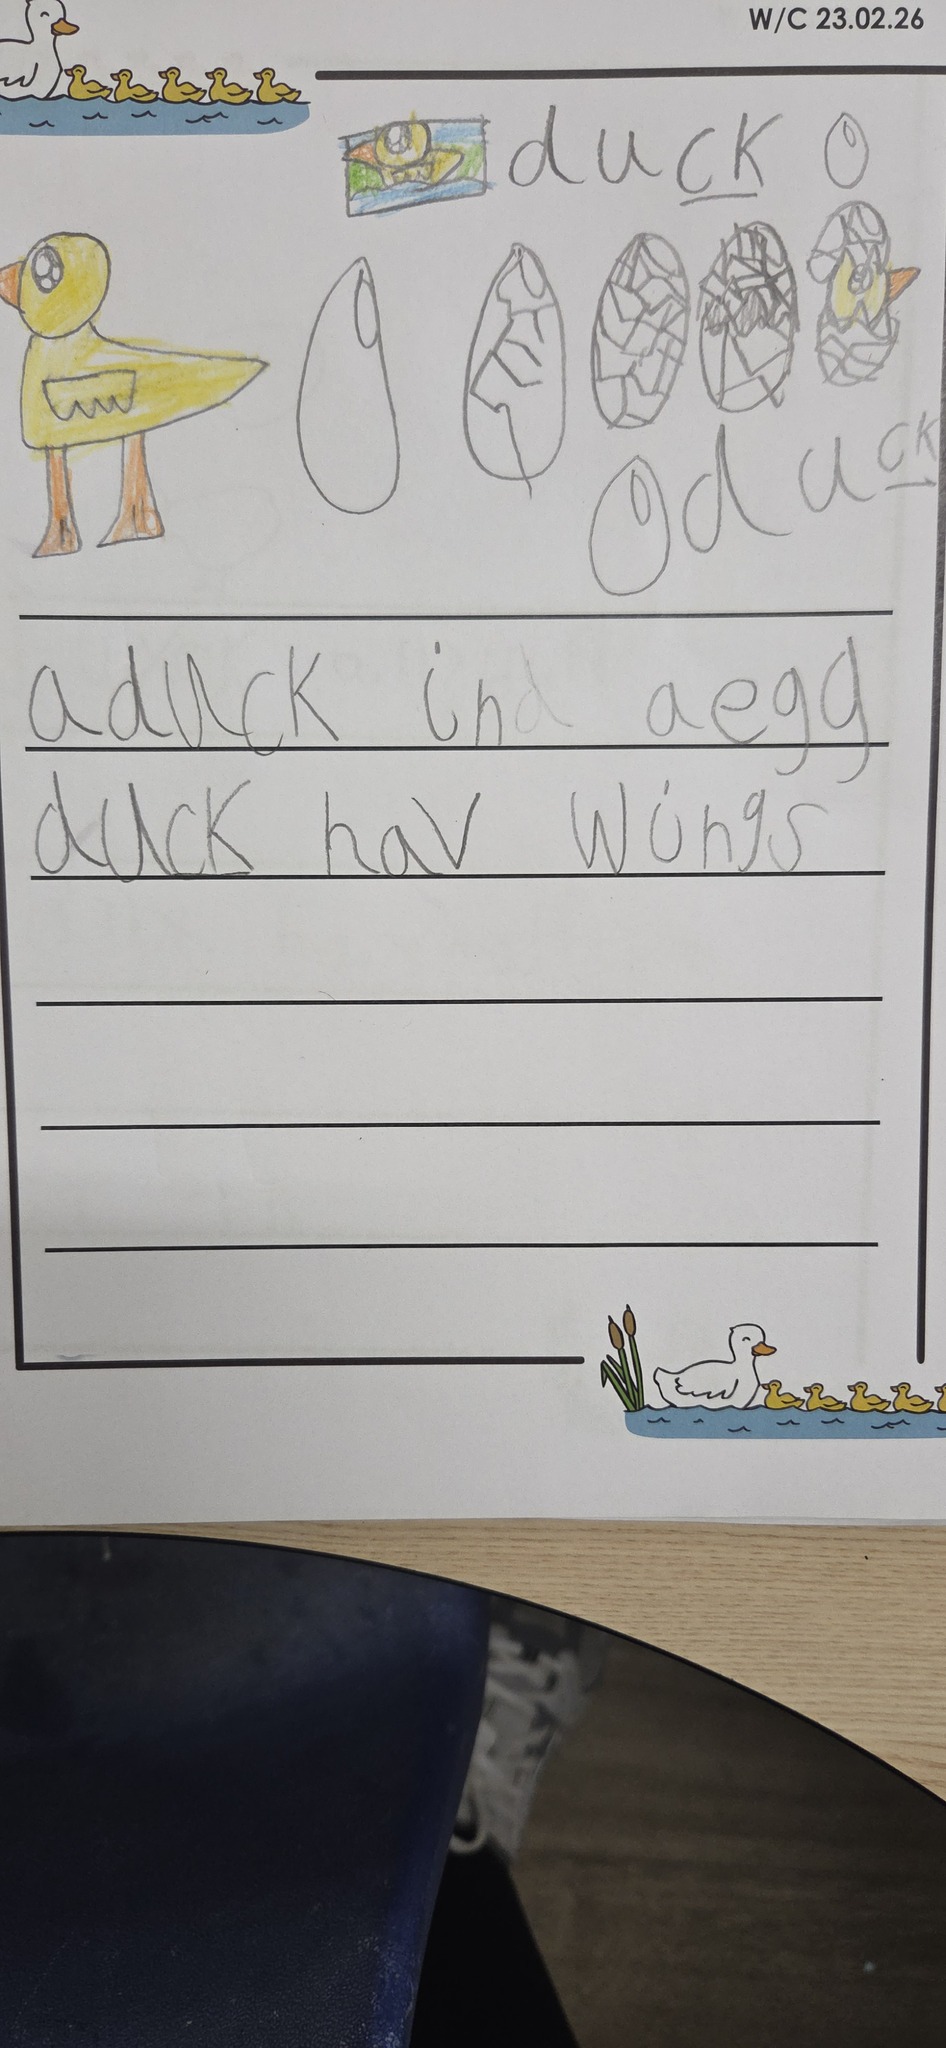 W/C 23.02.26
duck
duck
aduck in aegg
duck hav wings